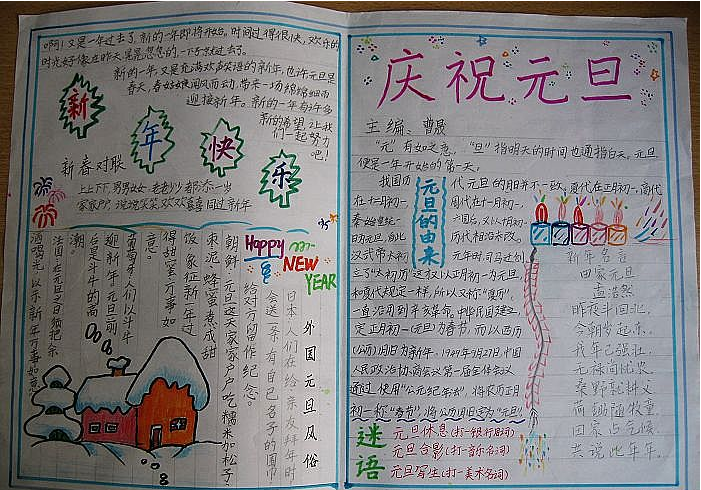 啊！又是一年过去了，新的一年即将开始。时间过得很快，欢乐的
时光好像在昨天，总是忽忽的，一下子就过去了。
新的一年，又是充满欢声笑语的新年，也许元旦是
春天，春姑娘闻风而动，带来一场绵绵细雨
迎接新年。新的一年有许多
新的希望，让我
们一起努力
吧！
新
年
快
乐
新春对联
上上下下，男男女女，老老少少都添一岁
家家户户，说说笑笑，欢欢喜喜同过新年
Happy
NEW
YEAR
外国元旦风俗
日本：人们在给亲友拜年时
会送一条有自己名字的围巾
给对方留作纪念。
朝鲜：元旦这天家家户户吃糯米加松子
枣泥、蜂蜜煮成甜
饭，象征新年过
得甜蜜，万事如
意。
葡萄牙人们以斗牛
迎新年，元旦前
台是斗牛的高
潮。
法国：在元旦之日须把余
酒喝光，以示新年万事如意
庆祝元旦
主编：曹晟
“元”有始之意，“旦”指明天的时间也通指白天。元旦
便是一年开始的第一天。
元旦的由来
我国历代元旦的月日并不一致。夏代在正月初一，商代
在十二月初一，周代在十一月初一，
秦始皇统一六国后，又以十月初一
日为元旦，自此历代相沿未改。
汉武帝太初元年时，司马迁创
立了“太初历”，这才又以正月初一为元旦，
和夏代规定一样，所以又称“夏历”，
一直沿用到辛亥革命。中华民国建立，
定正月初一(元旦)为春节，而以西历
(公历)1月1日为新年，1949年9月27日，中国
人民政治协商会议第一届全体会议
通过使用“公元纪年法”，将农历正月
初一称“春节”，将公历1月1日定为“元旦”。
新年名言
田家元旦
孟浩然
昨夜斗回北，
今朝岁起东。
我年已强壮，
无禄尚忧农。
桑野就耕父，
荷锄随牧童。
田家占气候，
共说此年年。
谜语
元旦休息(打一银行用词)
元旦合影(打一音乐名词)
元旦写生(打一美术名词)